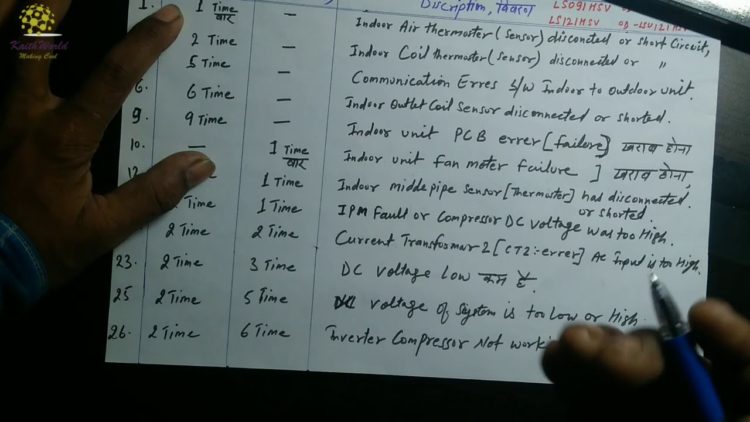 KaithWorld
Making Cool
Discription, विवरण LS091MSV
LS121MSV OD-LSU121HSV
1. 1 Time — Indoor Air thermaster (sensor) disconcted or short Circuit,
वार
2 Time — Indoor Coil thermaster (sensor) disconnected or "
5 Time — Communication Erres b/w Indoor to outdoor unit.
6. 6 Time — Indoor Outlet Coil Sensor disconnected or shorted.
9. 9 Time — Indoor unit PCB errer [failure] खराब होना
10. — 1 Time Indoor unit fan moter failure ] खराब होना,
वार
12 1 Time Indoor middepipe sensor [thermaster] has disconnected.
or shorted.
Time 1 Time IPM Fault or Compressor DC Voltage was too High.
2 Time 2 Time Current Transformar 2 [CT2:-errer] Ac Input is too High.
23. 2 Time 3 Time DC Voltage low कम है.
25 2 Time 5 Time voltage of system is too low or High.
26. 2 Time 6 Time Inverter Compressor Not